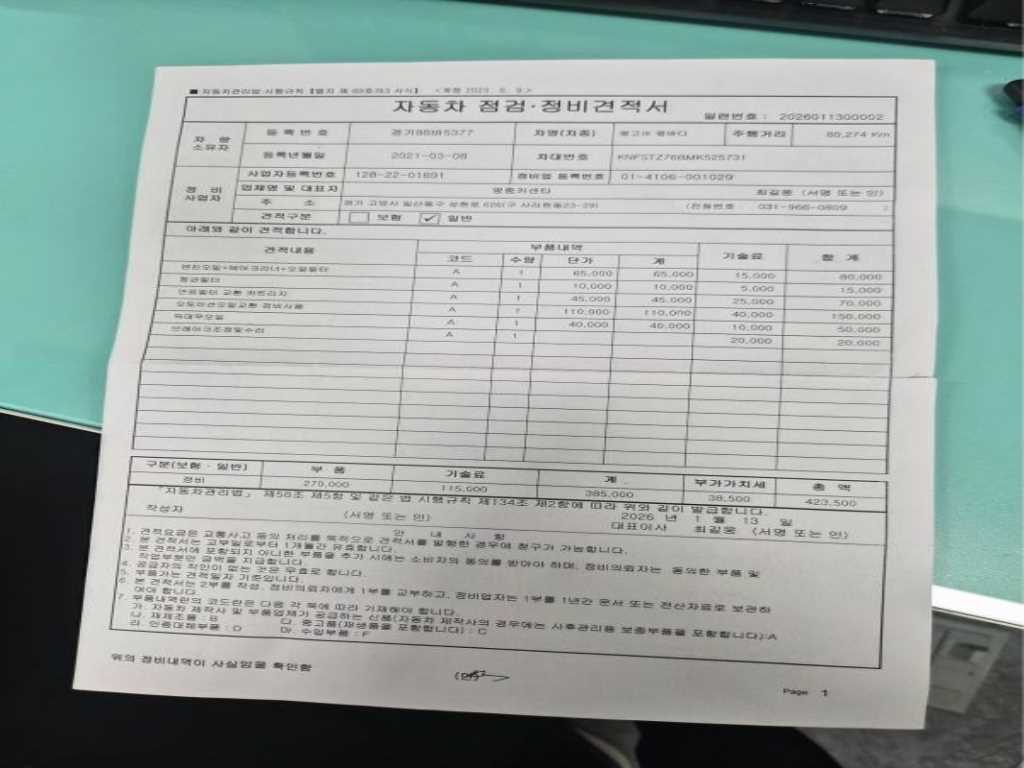 ■ 자동차관리법 시행규칙 [별지 제 89호의3 서식] <개정 2023. 6. 9.>
자동차 점검·정비견적서
일련번호 : 2026011300002
차 량 소유자
등 록 번 호 경기86바5377 차명(차종) 봉고Ⅲ 주행거리 80,274 Km
등록년월일 2021-03-08 차대번호 KNFSTZ76BMK525731
정 비 사업자
사업자등록번호 128-22-01891 정비업 등록번호 01-4106-001029
업체명 및 대표자 최길웅 (서명 또는 인)
주 소 경기 고양시 일산동구 (전화번호 : 031-966-0809 )
견적구분 보험 ✓ 일반
아래와 같이 견적합니다.
견적내용 부품내역 기술료 합 계
코드 수량 단가 계
엔진오일+에어크리너+오일필터 A 1 65,000 65,000 15,000 80,000
A 1 10,000 10,000 5,000 15,000
연료필터 교환 카트리지 A 1 45,000 45,000 25,000 70,000
A 1 110,000 110,000 40,000 150,000
A 1 40,000 40,000 10,000 50,000
A 1 20,000 20,000
구분(보험 · 일반) 부 품 기술료 계 부가가치세 총 액
정비 270,000 115,000 385,000 38,500 423,500
「자동차관리법」 제58조 제5항 및 같은 법 시행규칙 제134조 제2항에 따라 위와 같이 발급합니다.
2026 년 1 월 13 일
작성자 (서명 또는 인) 대표이사 최길웅 (서명 또는 인)
안 내 사 항
1. 견적요금은 교통사고 등의 처리를 목적으로 견적서를 발행한 경우에 청구가 가능합니다.
2. 본 견적서는 교부일로부터 1개월간 유효합니다.
3. 본 견적서에 포함되지 아니한 부품을 추가 시에는 소비자의 동의를 받아야 하며, 정비의뢰자는 동의한 부품 및
작업부분만 금액을 지급합니다.
4. 공급자의 직인이 없는 것은 무효로 합니다.
5. 부품가는 견적일자 기준입니다.
6. 본 견적서는 2부를 작성, 정비의뢰자에게 1부를 교부하고, 정비업자는 1부를 1년간 문서 또는 전산자료로 보관하
여야 합니다.
7. 부품내역란의 코드란은 다음 각 목에 따라 기재해야 합니다.
가. 자동차 제작사 및 부품업체가 공급하는 신품(자동차 제작사의 경우에는 사후관리용 보증부품을 포함합니다):A
나. 재제조품 : B 다. 중고품(재생품을 포함합니다) : C
라. 인증대체부품 : D 마. 수입부품 : F
위의 정비내역이 사실임을 확인함
(인)
Page 1